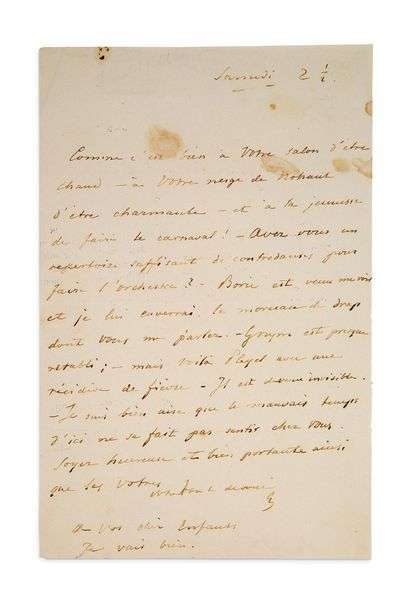 Samedi 2 ½.
Comme c'est bien à Votre salon d'être
chaud – à Votre neige de Nohant
d'être charmante – et à la jeunesse
de faire le carnaval! – Avez vous un
repertoire suffisant de contredanses pour
faire l'orchestre? – Borie est venu me voir
et je lui enverrai le morceau de drap
dont vous me parlez. – Grzym est presque
retabli; – mais voilà Pleyel avec une
récidive de fièvre – Il est devenu invisible.
– Je suis bien aise que le mauvais temps
d'ici ne se fait pas sentir chez vous.
Soyez heureuse et bien portante ainsi
que les Votres
Votre tout devoué
A vos cher Enfants
Je vais bien.